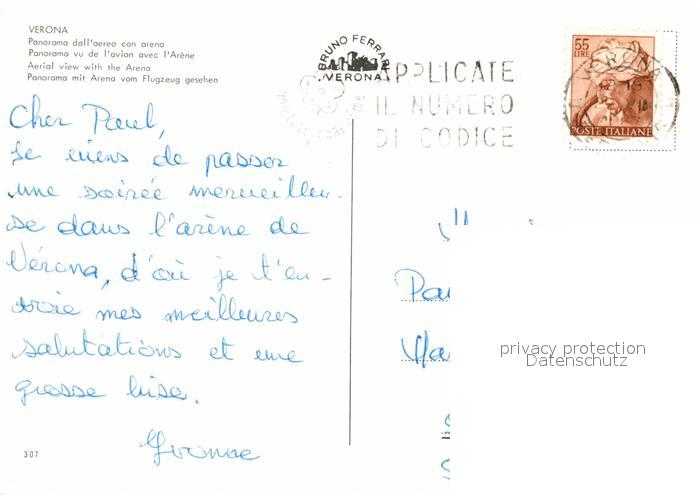 VERONA
Panorama dall'aereo con arena
Panorama vu de l'avion avec l'Arène
Aerial view with the Arena
Panorama mit Arena vom Flugzeug gesehen
BRUNO FERRARI
VERONA
APPLICATE
IL NUMERO
DI CODICE
55
LIRE
POSTE ITALIANE
VERONA
Cher Paul,
Je viens de passer
une soirée merveilleu-
se dans l'arène de
Vérona, d'où je t'en-
voie mes meilleures
salutations et une
grosse bise.
Yvonne
privacy protection
Datenschutz
307